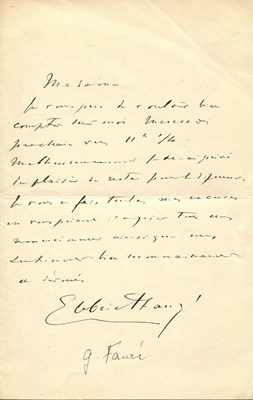 Madame
Je vous prie de vouloir bien
compter sur moi Mercredi
prochain vers 11h 1/4.
Malheureusement je
de rester pour déjeuner.
Je vous en fais toutes mes excuses
en vous priant d'agréer tous mes
remerciements ainsi que mes
sentiments bien reconnaissants
et dévoués
G. Fauré